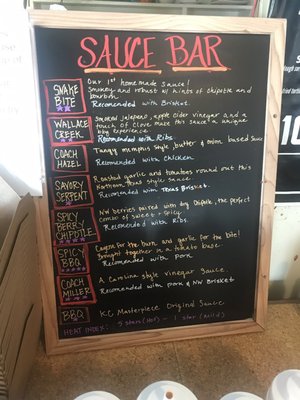 SAUCE BAR
SNAKE BITE
Our 1st homemade Sauce!
Smokey and robust w/ hints of Chipotle and
bourbon.
Recomended with Brisket.
WALLACE CREEK
Smoked jalapeno, apple cider vinegar and a
touch of clove make this sauce a unique
bbq experience.
Recomended with Ribs
COACH HAZEL
Tangy Memphis style, butter & onion based sauce
Recomended with Chicken
SAVORY SERPENT
Roasted garlic and tomatoes round out this
Northern Texas style sauce
Recomended with Texas Brisket.
SPICY BERRY CHIPOTLE
NW berries paired with dry Chipotle, the perfect
combo of sweet + spicy.
Recomended with Ribs.
SPICY BBQ
Cayenne for the burn and garlic for the bite!
Brought together in a tomato base
Recomended with pork
COACH MILLER
A Carolina style vinegar Sauce.
Recomended with pork & NW Brisket
BBQ
KC Masterpiece Original Sauce
HEAT INDEX: 5 stars (Hot) - 1 star (Mild)
10